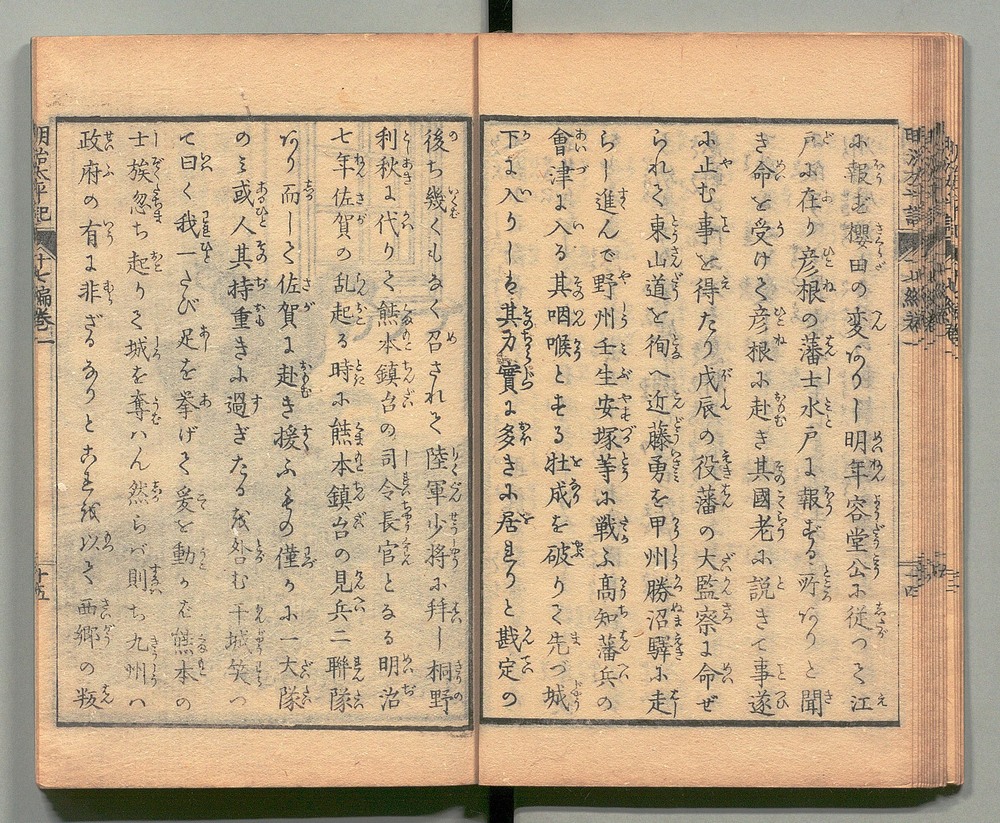 に報む櫻田の変あり一明年容堂公に従つて江
戸に在り彦根の藩士水戸に報ずる所ありと聞
き命を受けて彦根に赴き其國老に説きて事遂
に止む事を得たり戊辰の役藩の大監察に命ぜ
られて東山道を徇へ近藤勇を甲州勝沼驛に走
らし進んで野州壬生安塚等に戦ふ高知藩兵の
會津に入る其咽喉とする壮成を破りて先づ城
下に入りしも其力實に多きに居れりと戡定の
後ち幾くもなく召されて陸軍少将に拝し桐野
利秋に代りて熊本鎮台の司令長官となる明治
七年佐賀の乱起る時に熊本鎮台の見兵二聯隊
あり而して佐賀に赴き援ふもの僅かに一大隊
のミ或人其持重きに過ぎたるを外む干城笑つ
て曰く我一たび足を挙げて爰を動かバ熊本の
士族忽ち起りて城を奪ハん然らバ則ち九州ハ
政府の有に非ざるなりとこれを以て西郷の叛
明治太平記
十七編巻二
十五